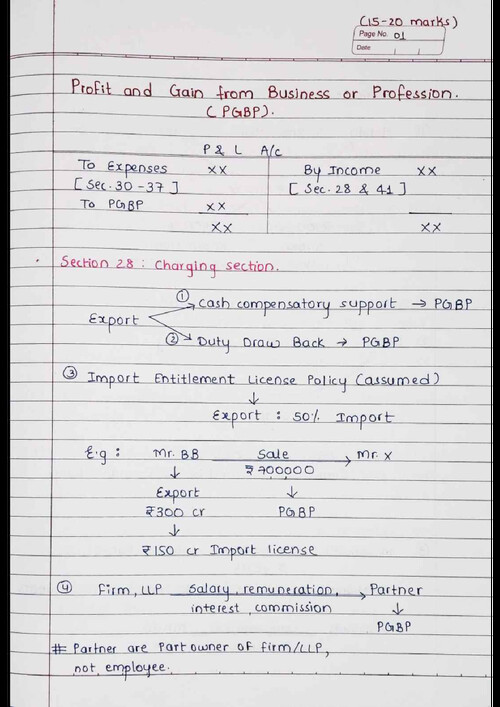 (15-20 marks)
Page No. 01
Date
Profit and Gain from Business or Profession.
(PGBP).
P & L A/c
To Expenses XX By Income XX
[Sec. 30-37] [Sec. 28 & 41]
To PGBP XX
XX XX
Section 28 : Charging section.
Export
① Cash compensatory support → PGBP
② Duty Draw Back → PGBP
③ Import Entitlement License Policy (assumed)
↓
Export : 50% Import
E.g : Mr. BB Sale → Mr. X
↓ ₹700,000
Export ↓
₹300 cr PGBP
↓
₹150 cr Import license
④ Firm, LLP salary, remuneration, → Partner
interest, commission ↓
PGBP
# Partner are Part owner of firm/LLP,
not employee.